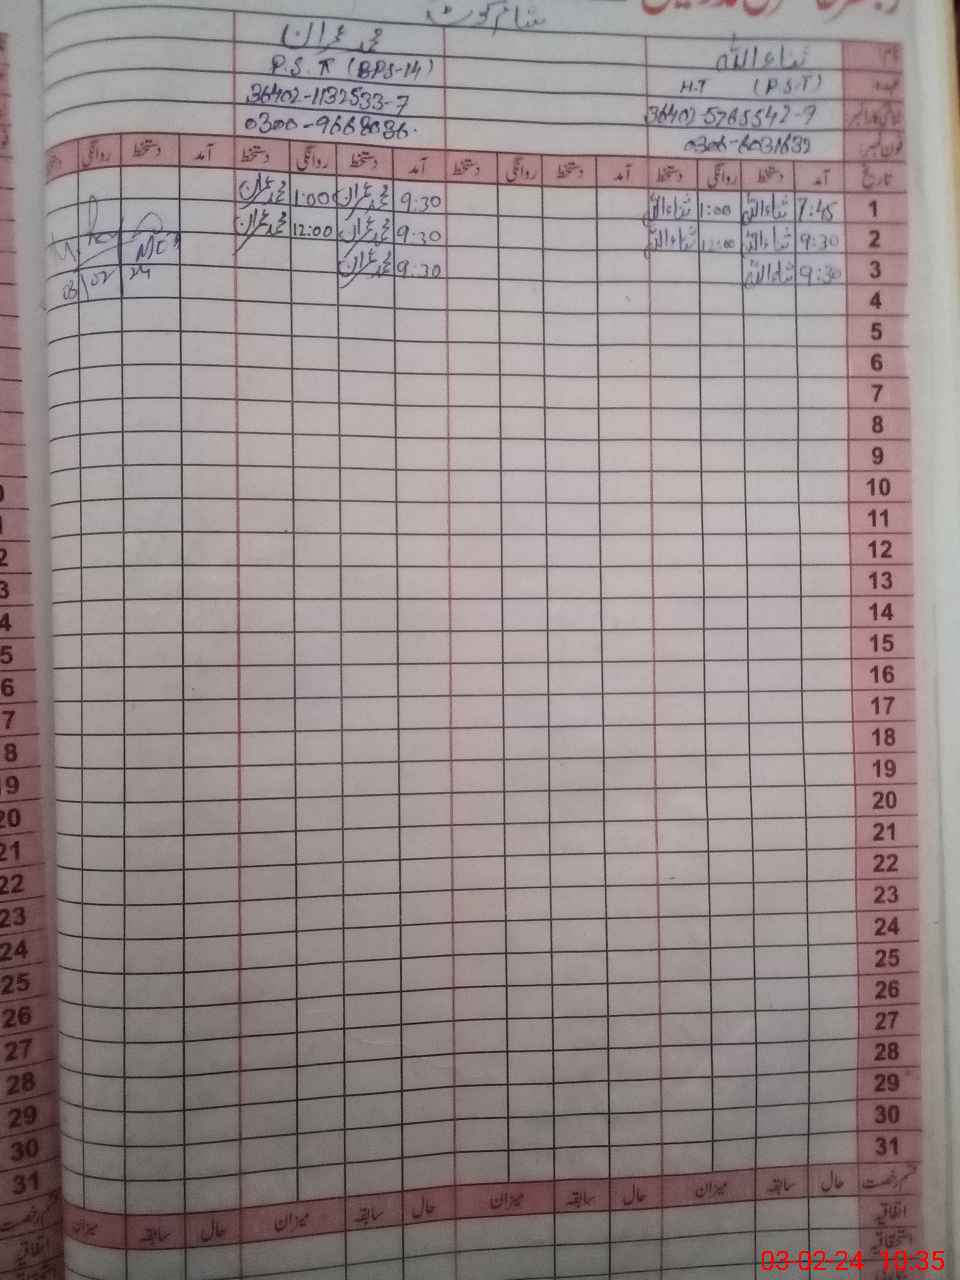 شام کوٹ
نام ثناء اللہ محمد عمران
عہدہ H.T (P.S.T) P.S.T (BPS-14)
36402-5765542-9 36402-1132533-7
فون نمبر 0306-6031632 0300-9668036
تاریخ آمد دستخط روانگی دستخط آمد دستخط روانگی دستخط آمد دستخط روانگی دستخط آمد دستخط روانگی
1 7:45 ثناء اللہ 1:00 ثناء اللہ 9:30 محمد عمران 1:00 محمد عمران
2 9:30 ثناء اللہ 12:00 ثناء اللہ 9:30 محمد عمران 12:00 محمد عمران
3 9:30 ثناء اللہ 9:30 محمد عمران 03/02 24
4
5
6
7
8
9
10
11
12
13
14
15
16
17
18
19
20
21
22
23
24
25
26
27
28
29
30
31
قسم رخصت حال سابقہ میزان حال سابقہ میزان حال سابقہ میزان حال سابقہ میزان
اتفاقیہ
استحقاقیہ
03-02-24 10:35